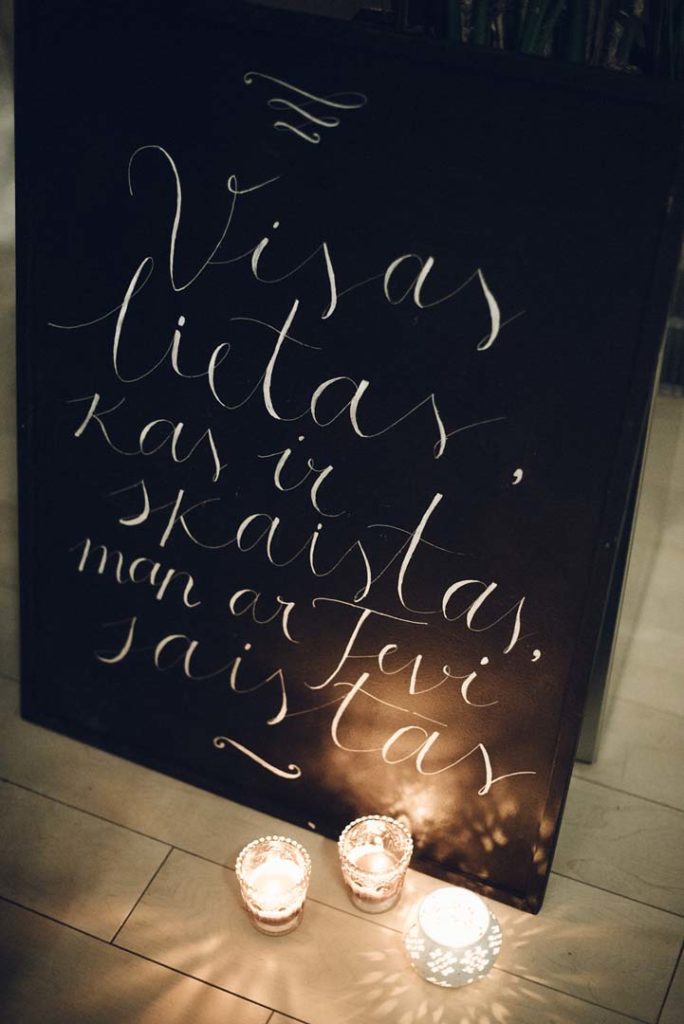 Visas
lietas,
kas ir
skaistas,
man ar Tevi
saistās